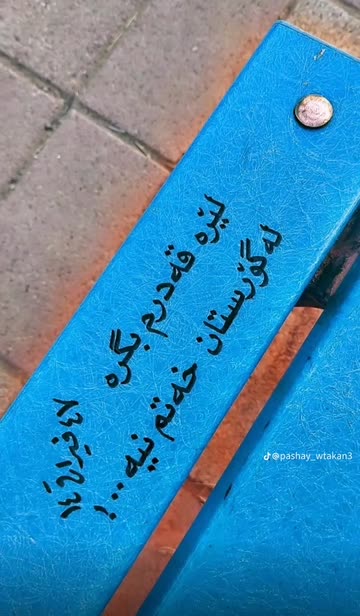 لێرە قەدرم بگرە
لەگۆڕستان خەتم نییە...!
@pashay_wtakan3